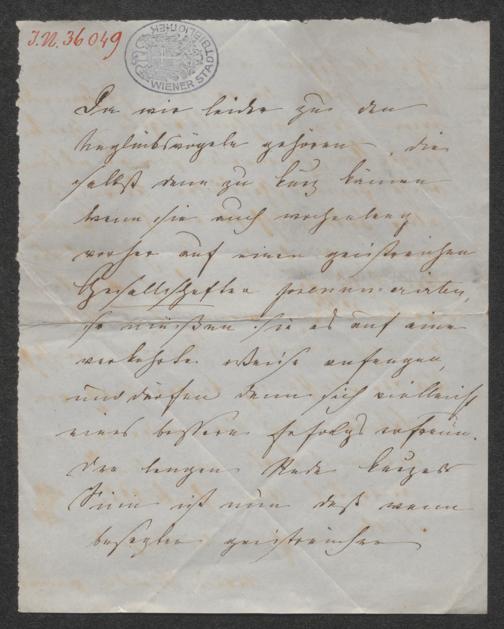 I.N. 36049
WIENER STADTBIBLIOTHEK
Da wir leider zu den
Unglücksvögeln gehören, die
selbst dann zu kurz kämen
wenn sie auch wochenlang
vorher auf einen geistreichen
Gesellschafter pränumerirten,
so müßen sie es auf eine
verkehrte Weise anfangen,
und dürfen dann sich vielleicht
eines bessern Erfolgs erfreun.
Der langen Rede kurzer
Sinn ist nun daß wenn
besagter geistreicher